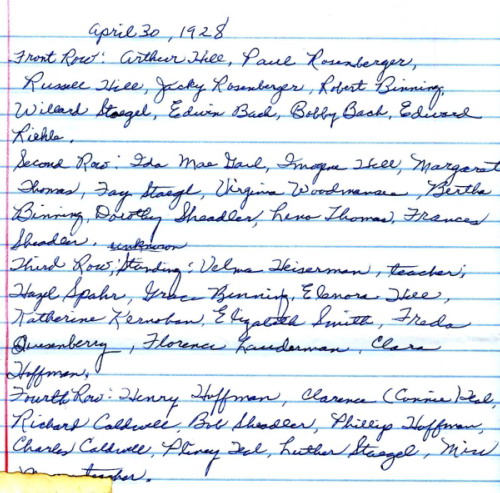 April 30, 1928
Front Row: Arthur Hill, Paul Rosenberger,
Russell Hill, Jacky Rosenberger, Robert Binning,
Willard Staegel, Edwin Bach, Bobby Bach, Edward
Riehle.
Second Row: Ida Mae Gail, Imogene Hill, Margaret
Thomas, Fay Staegel, Virginia Woodmansee, Bertha
Binning, Dorothy Sheadler, Lena Thomas, Frances
Sheadler. unknown
Third Row Standing: Velma Heiserman, teacher;
Hazel Spahr, Grace Binning, Elenora Hill,
Katherine Kernohan, Elizabeth Smith, Freda
Quesenberry, Florence Lauderman, Clara
Hoffman.
Fourth Row: Henry Hoffman, Clarence (Connie) Teal,
Richard Caldwell, Bob Sheadler, Phillip Hoffman,
Charles Caldwell, Pliney Teal, Luther Staegel, Miss
teacher.